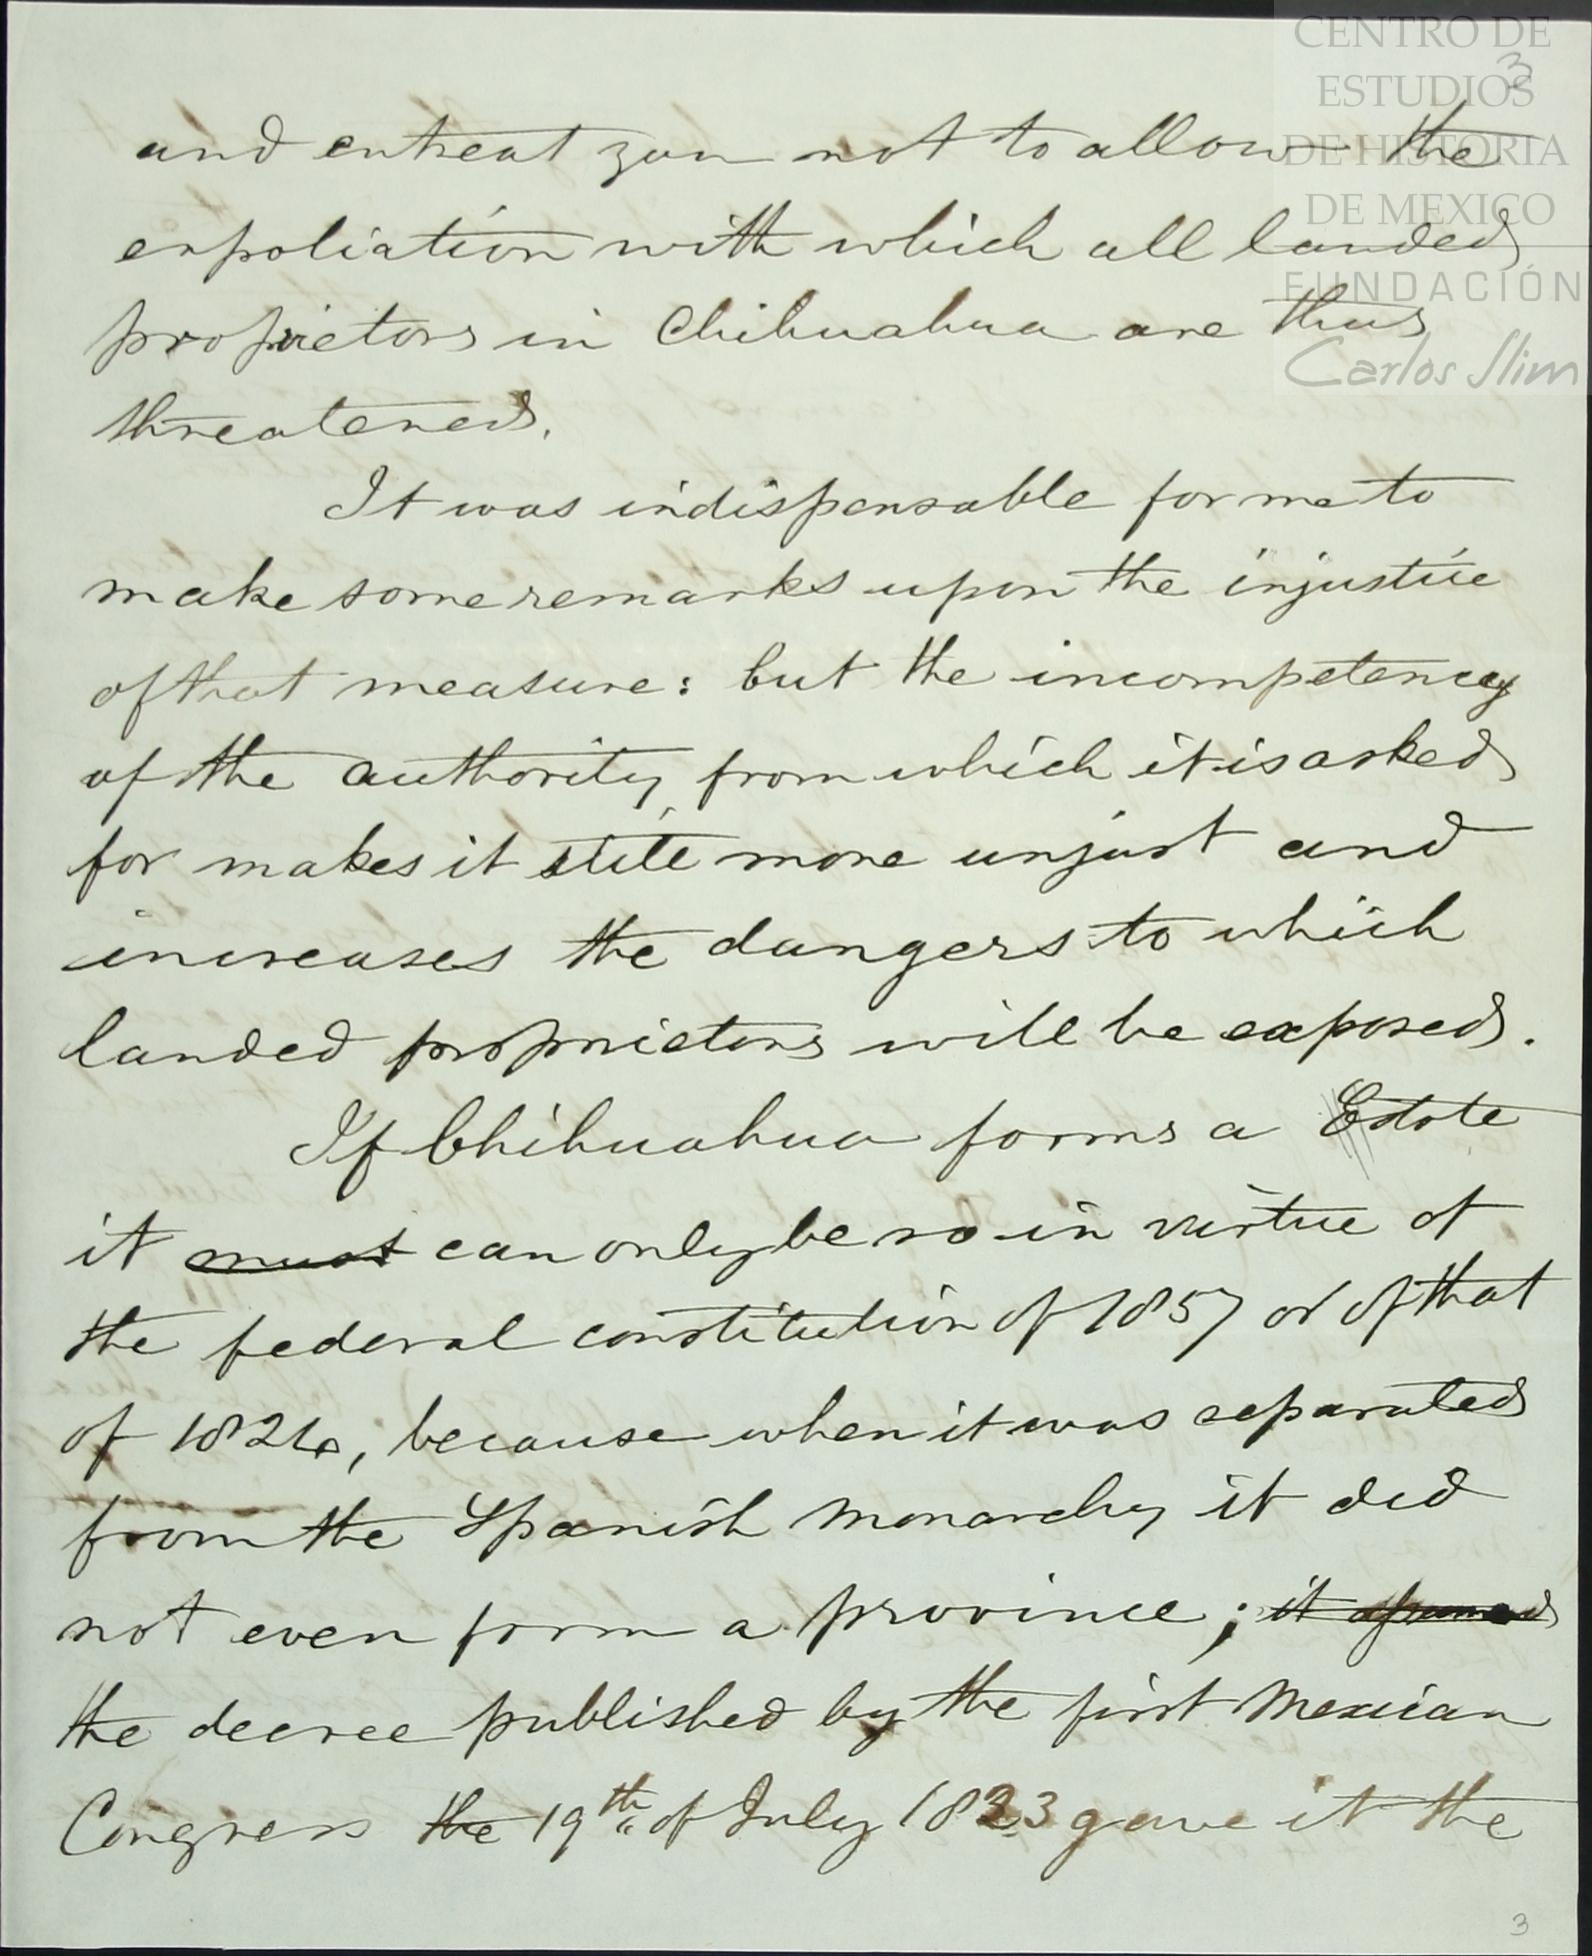 CENTRO DE
ESTUDIOS
DE HISTORIA
DE MEXICO
FUNDACIÓN
Carlos Slim
3
and entreat you not to allow the
expoliation with which all landed
proprietors in Chihuahua are thus
threatened.
It was indispensable for me to
make some remarks upon the injustice
of that measure: but the incompetency
of the authority from which it is asked
for makes it still more unjust and
increases the dangers to which
landed proprietors will be exposed.
If Chihuahua forms a Estate
it must can only be so in virtue of
the federal constitution of 1857 or of that
of 1824, because when it was separated
from the Spanish Monarchy it did
not even form a province; it
the decree published by the first Mexican
Congress the 19th of July 1823 gave it the
3